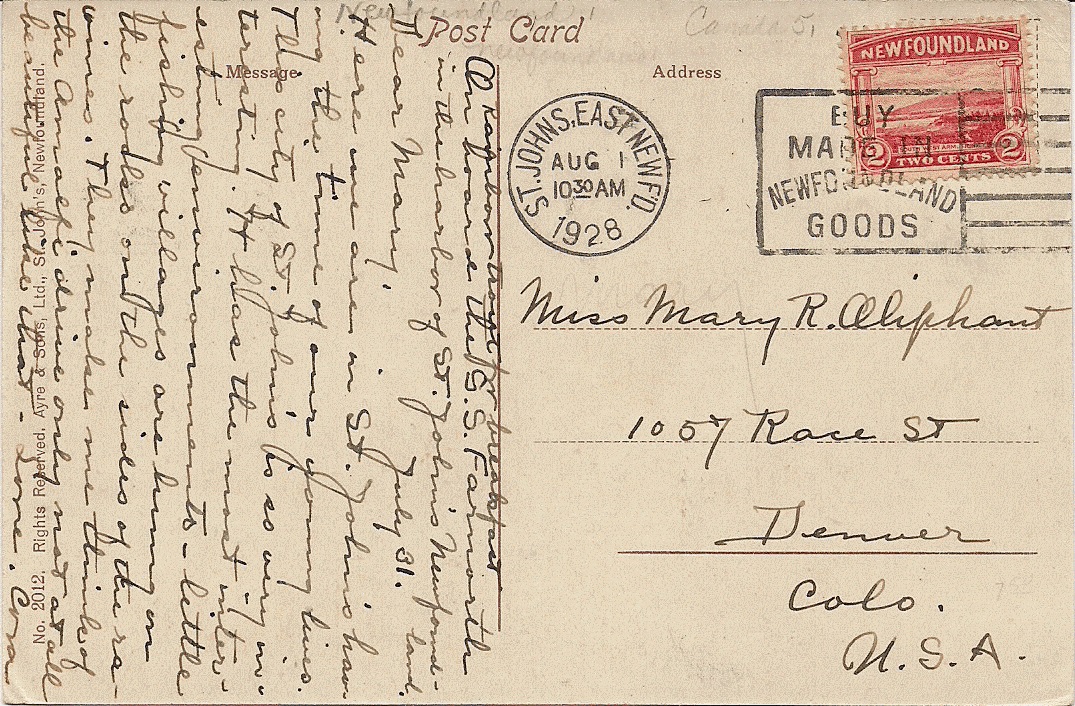 Newfoundland
Canada
Post Card
Message
Address
NEWFOUNDLAND
2
2
TWO CENTS
ST. JOHNS. EAST NEWF'D.
AUG 1
10 30 AM
1928
BUY
MADE IN
NEWFOUNDLAND
GOODS
Miss Mary R. Oliphant
1057 Race St
Denver
Colo.
U.S.A.
breakfast
On board the S.S. Farnorth
in the harbor of St. John's Newfound-
land.
Dear Mary, July 31.
Here we are in St. John's hav-
ing the time of our young lives.
This city of St. John's is so very in-
teresting. It has the most inter-
esting environments - little
fishing villages are hung on
the rocks on the sides of the ra-
vines. They make me think of
the Amalfi drive only not at all
beautiful like that - Love. Cora
No. 2012. Rights Reserved. Ayre & Sons, Ltd., St. John's, Newfoundland.